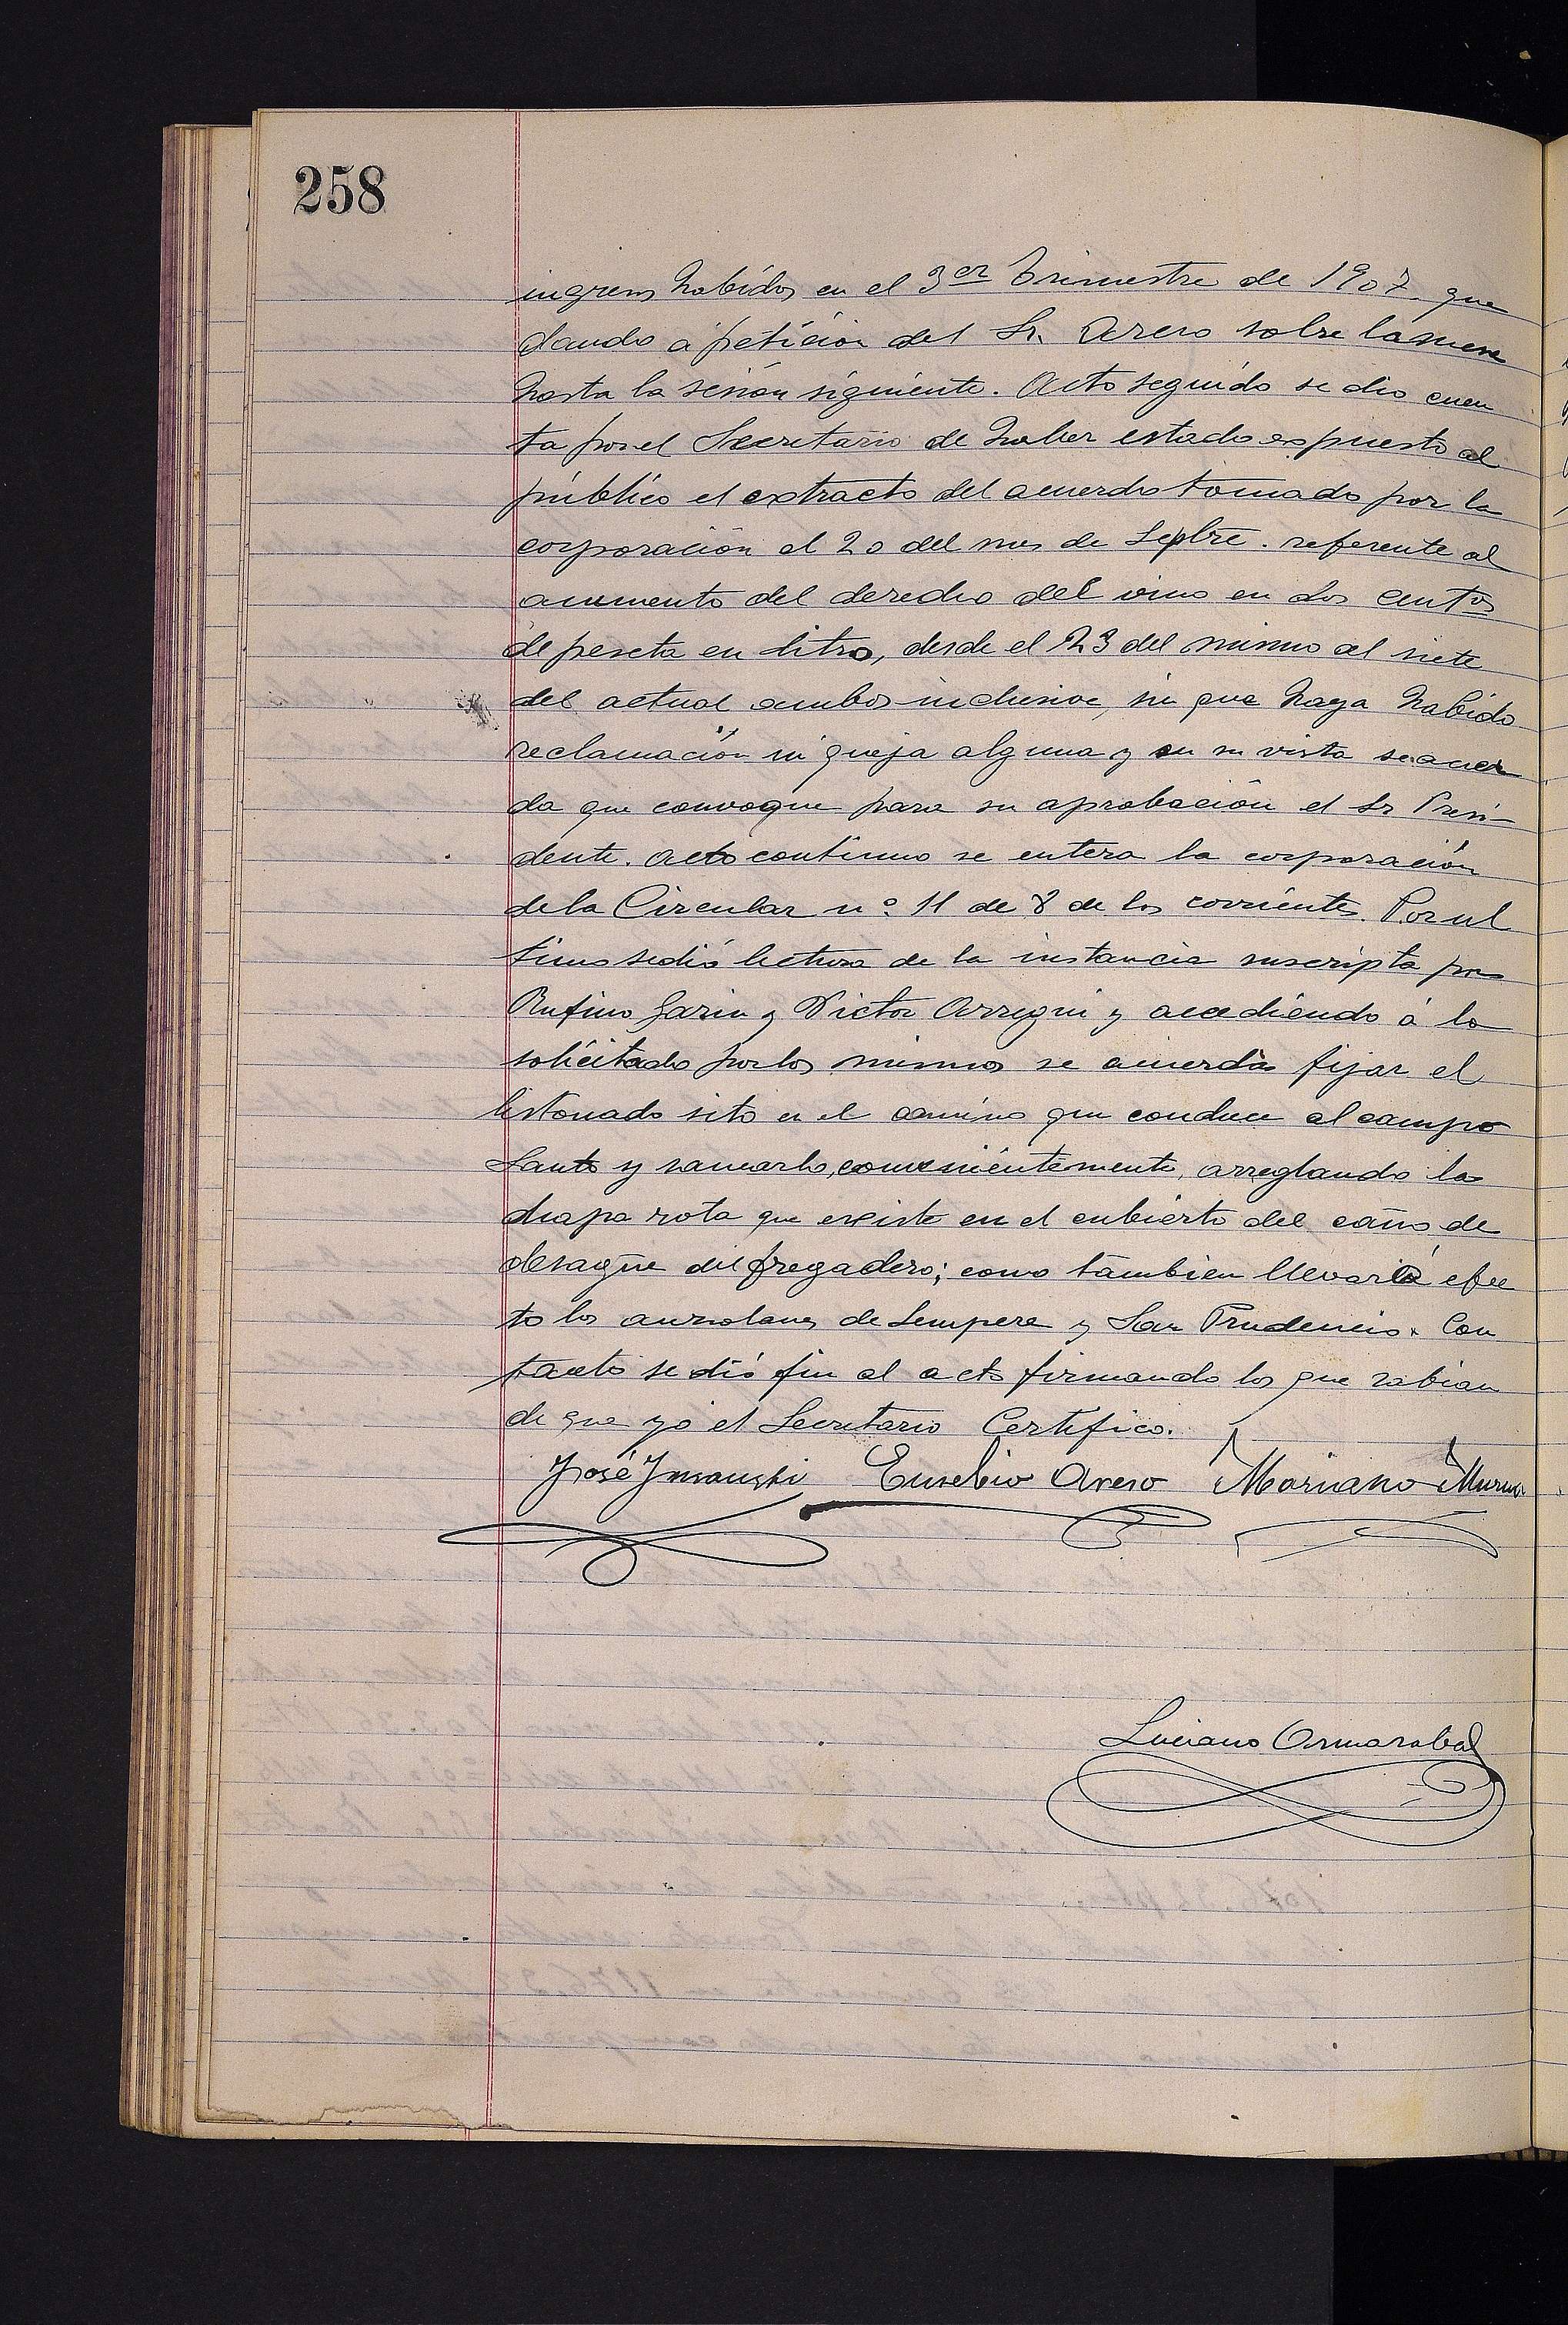 258
ingresos habidos en el 3er trimestre de 1907 que
dando á petición del Sr. Arero sobre la mesa
hasta la sesión siguiente. Acto seguido se dio cuen
ta por el Secretario de haber estado expuesto al
público el extracto del acuerdo tomado por la
corporación el 20 del mes de Septbre. referente al
aumento del derecho del vino en dos centos
de peseta en litro, desde el 23 del mismo al siete
del actual ambos inclusive, sin que haya habido
reclamación ni queja alguna y en su vista se acuer
da que convoque para su aprobación el Sr Presi-
dente. Acto continuo se entera la corporación
de la Circular nº. 11 de 8 de los corrientes. Por ul
timo se dió lectura de la instancia suscripta por
Rufino Garin y Victor Arregui y accediendo á lo
solicitado por los mismos se acuerda fijar el
listonado sito en el camino que conduce al campo
Santo y sanearlo, convenientemente, arreglando la
chapa rota que existe en el cubierto del caño de
desagüe del fregadero; como tambien llevar á efec
to los de Sempere y San Prudencio. Con
tanto se dió fin al acto firmando los que sabian
de que yó el Secretario Certifico.
José Eusebio Arero Mariano
Luciano Ormazabal